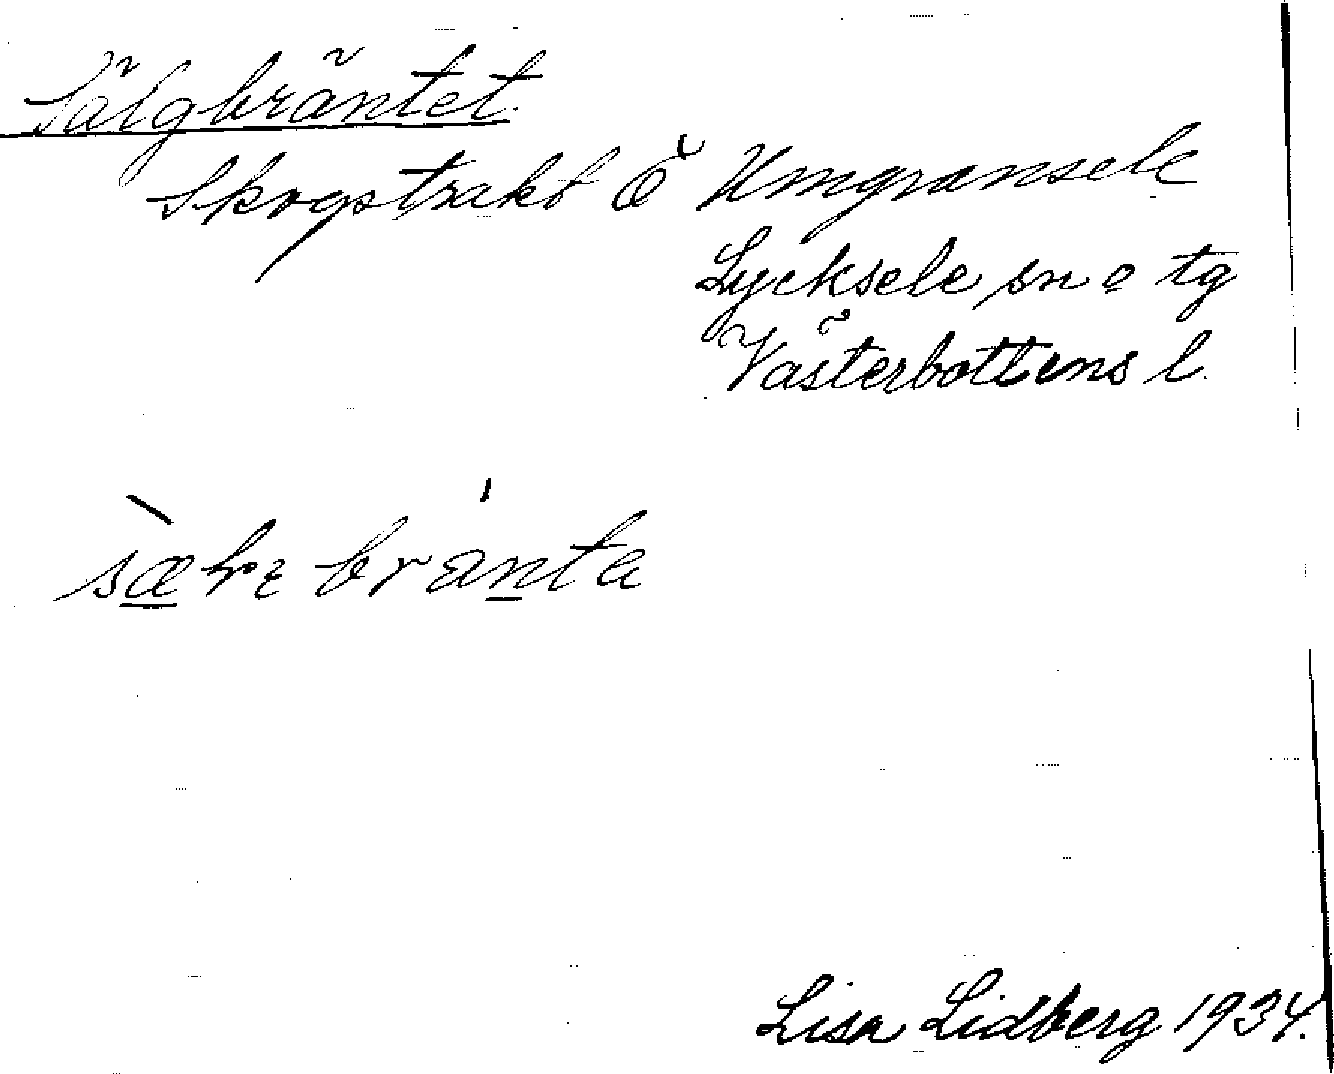 Sälgbräntet.
Skogstrakt å Umgransele
Lycksele sn o tg
Västerbottens l.
Lisa Lidberg 1934.